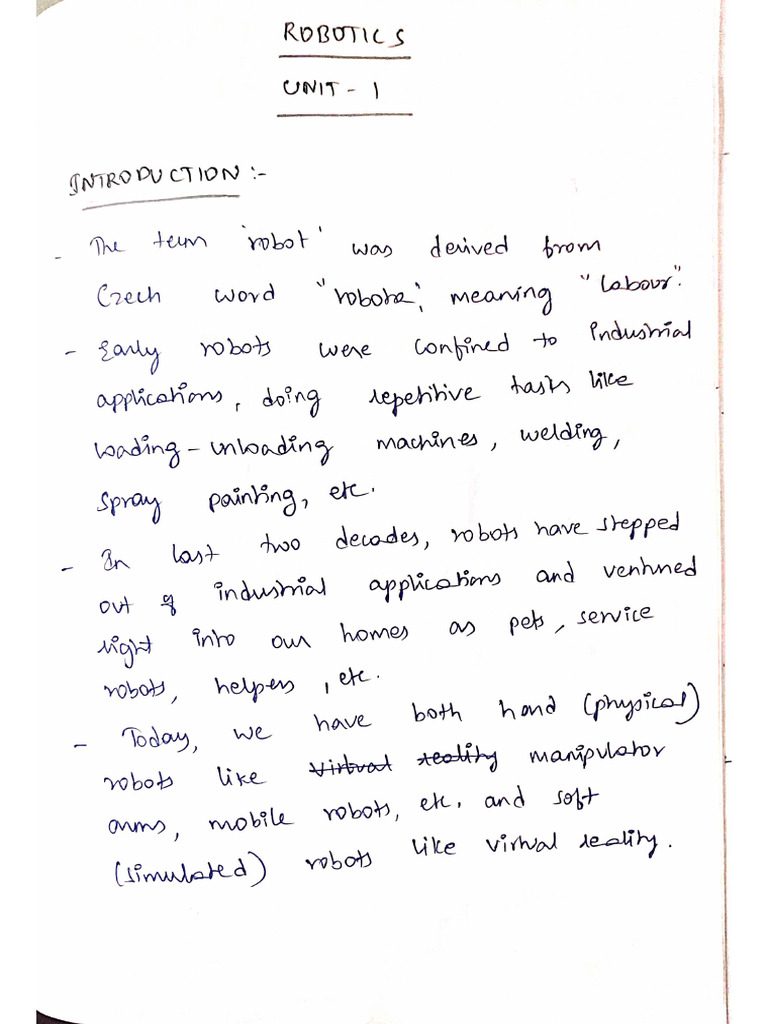 ROBOTICS
UNIT - 1
INTRODUCTION :-
- The term 'robot' was derived from
Czech word "robota", meaning "labour".
- Early robots were confined to industrial
applications, doing repetitive tasks like
loading - unloading machines, welding,
spray painting, etc.
- In last two decades, robots have stepped
out of industrial applications and ventured
right into our homes as pets, service
robots, helpers, etc.
- Today, we have both hard (physical)
robots like virtual reality manipulator
arms, mobile robots, etc. and soft
(simulated) robots like virtual reality.